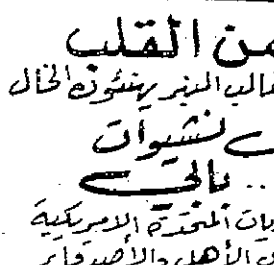 من القلب
طالب المنير يهنئون الخال
نشيوات
.. بالي
يات المتحدة الامريكية
الأهل والأصدقاء